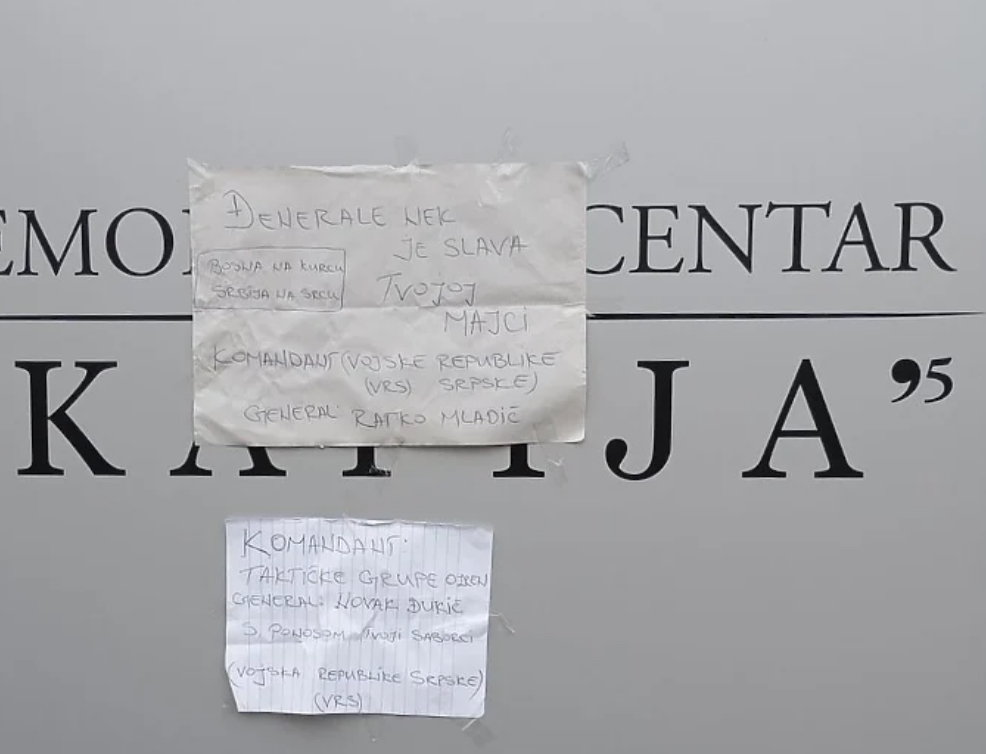 EMO CENTAR
ĐENERALE NEK
JE SLAVA
BOSNA NA KURCU
SRBIJA NA SRCU
TVOJOJ
MAJCI
KOMANDANT (VOJSKE REPUBLIKE
(VRS) SRPSKE)
GENERAL: RATKO MLADIČ
KAPIJA ’95
KOMANDANT:
TAKTIČKE GRUPE OZREN
GENERAL: NOVAK ĐUKIČ
S PONOSOM TVOJI SABORCI
(VOJSKA REPUBLIKE SRPSKE)
(VRS)